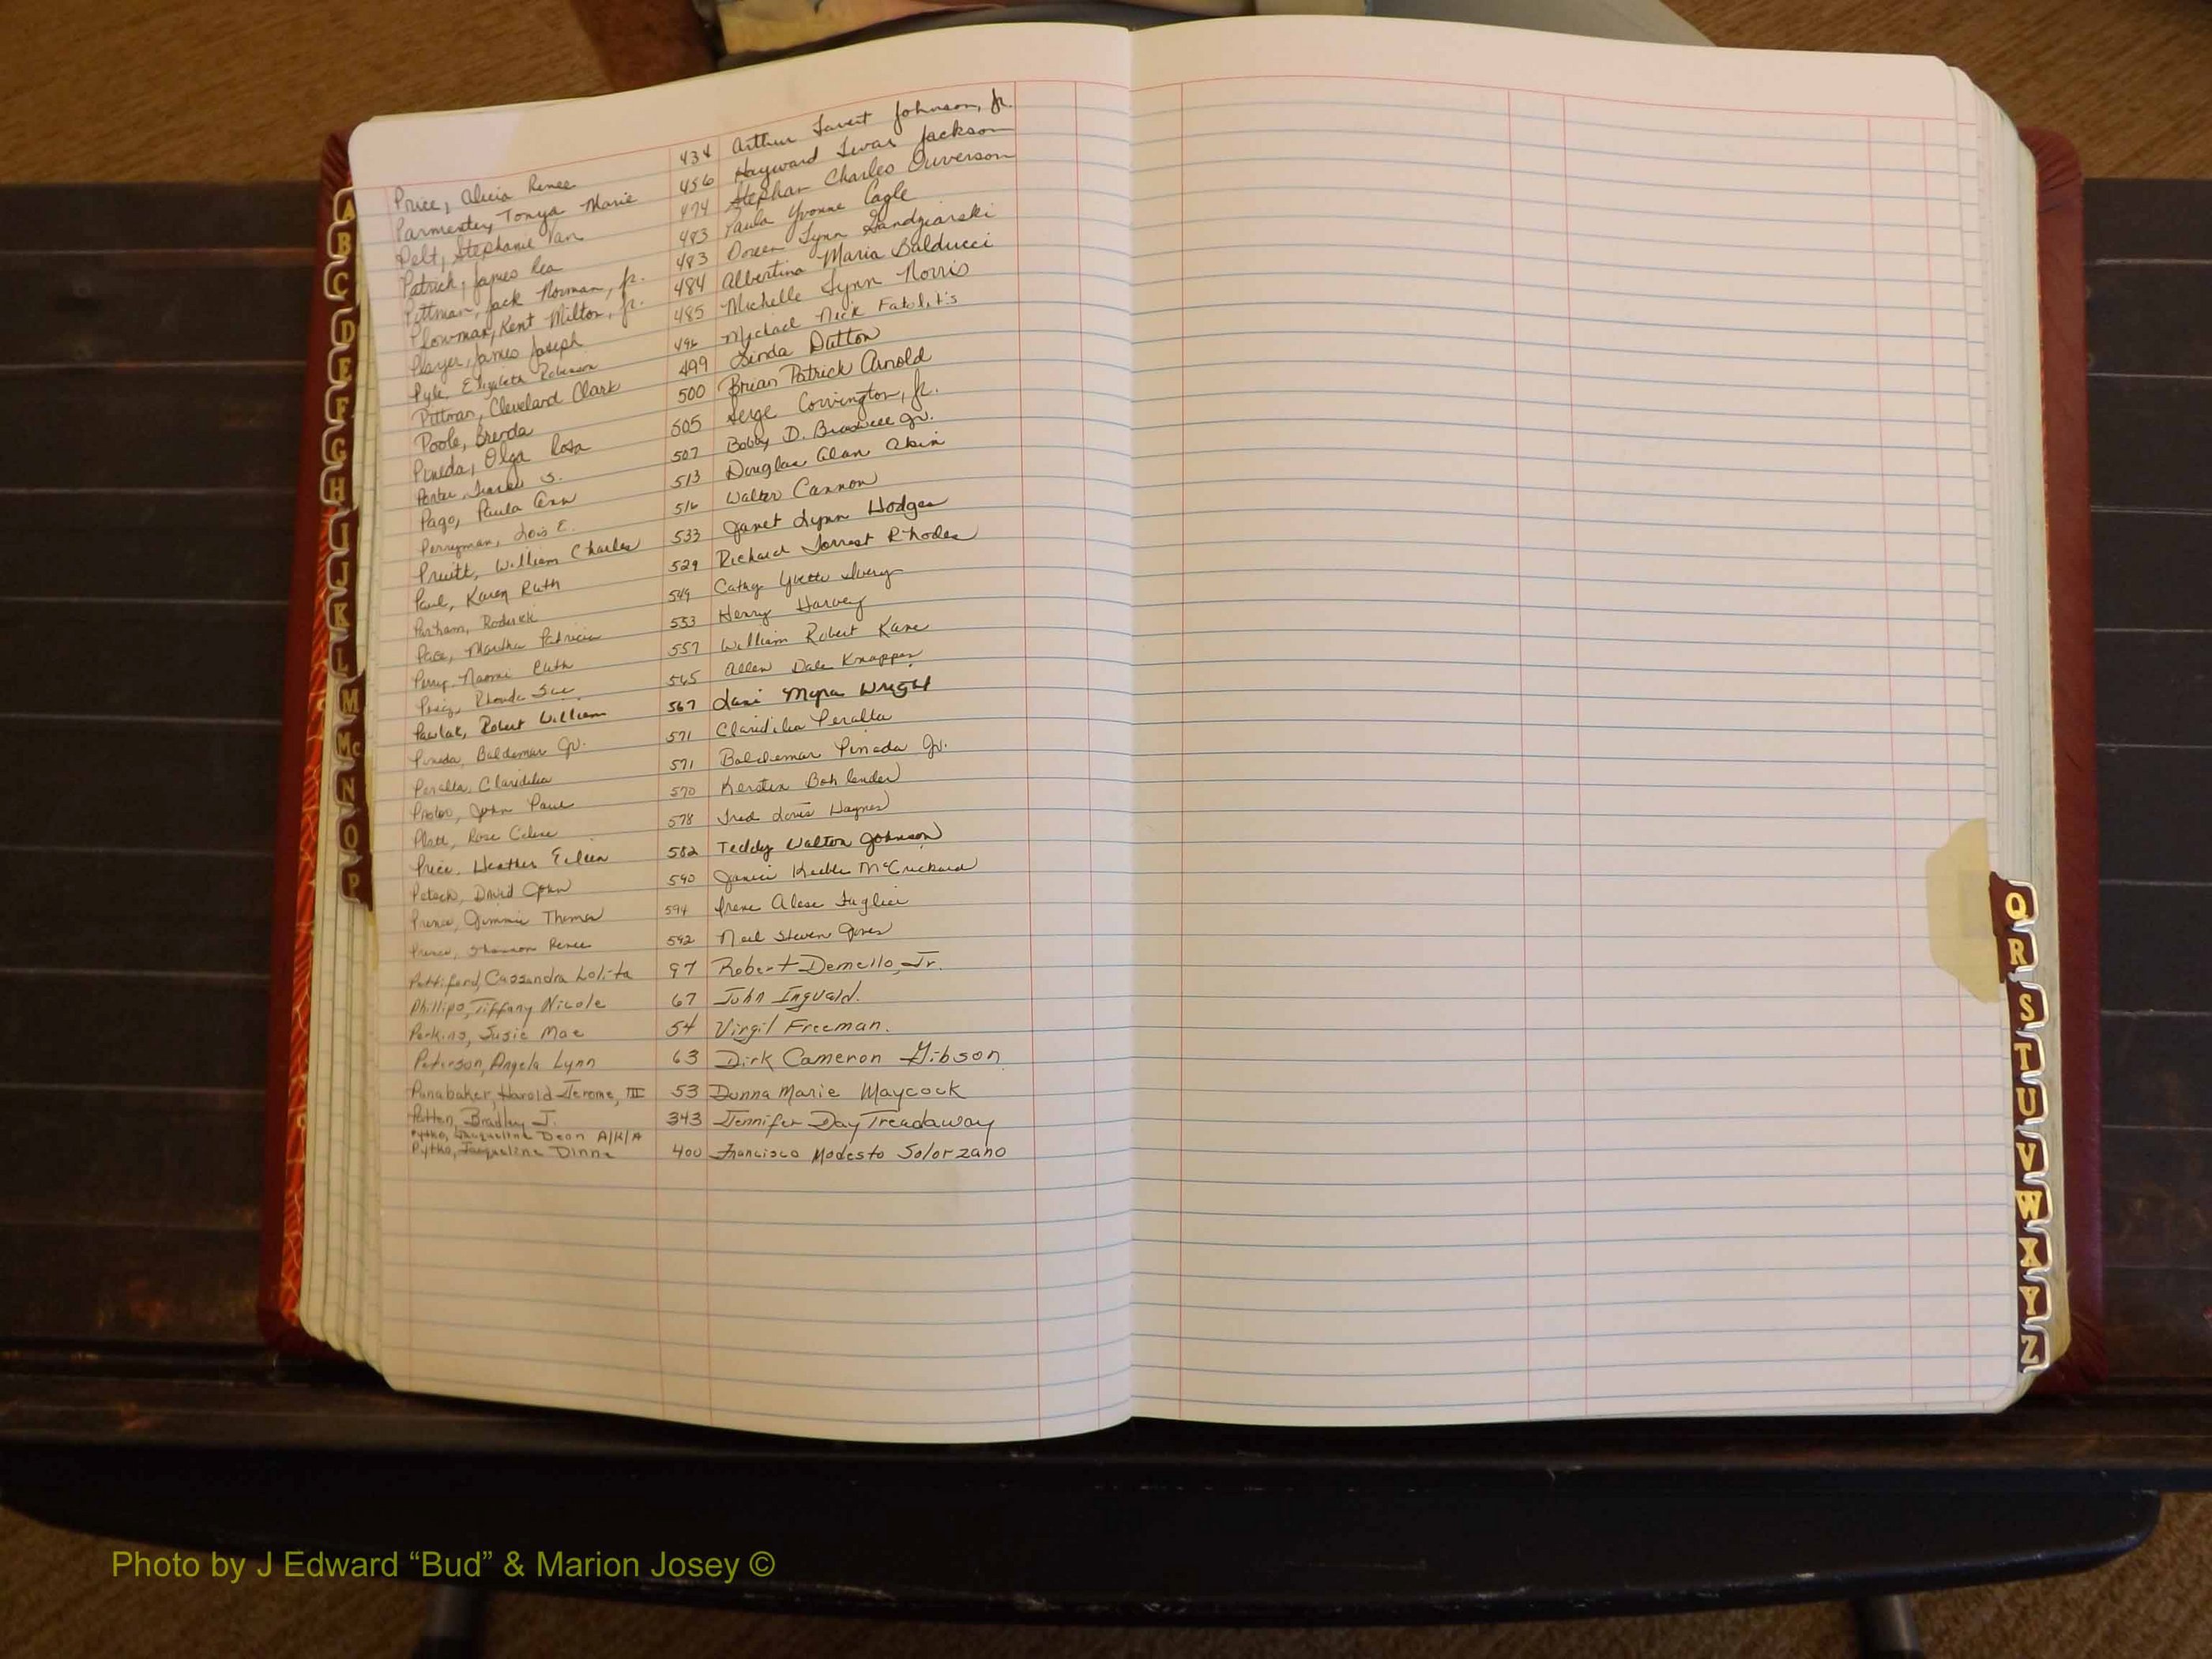 Price, Alicia Renee 434 Arthur Javert Johnson, Jr.
Parmenter, Tonya Marie 456 Hayward Jackson
Pelt, Stephanie Van 474 Stephan Charles Ouverson
Patrick, James Rea 483 Paula Yvonne Cagle
Pittman, Jack Norman, Jr. 483 Doreen Lynn
Plowman, Kent Milton, Jr. 484 Albertina Maria Balducci
Player, James Joseph 485 Michelle Lynn Norris
Pyle, Elizabeth Robinson 496 Michael Nick Fatolitis
Pittman, Cleveland Clark 499 Linda Dutton
Poole, Brenda 500 Brian Patrick Arnold
Pineda, Olga Rosa 505 Serge Corvington, Jr.
Porter, S. 507 Bobby D. Braswell Jr.
Pago, Paula Ann 513 Douglas Alan Akin
Perryman, Lois E. 516 Walter Cannon
Pruitt, William Charles 533 Janet Lynn Hodges
Paul, Karen Ruth 529 Richard Forrest Rhodes
Parham, Roderick 549 Cathy Yvette Ivery
Pace, Martha Patricia 553 Henry Harvey
Perry, Naomi Ruth 557 William Robert Kane
Rhonda Sue 565 Allen Dale Knapper
Pawlak, Robert William 567 Lani Myra Wright
Pineda, Baldemar Jr. 571 Claridilia Peralta
Peralta, Claridilia 571 Baldemar Pineda Jr.
John Paul 570 Kerstin Bohlender
Platt, Rose Celese 578 Fred Louis Haynes
Price, Heather Eileen 582 Teddy Walton Johnson
Petech, David John 590 Janice Keeble McCrickard
Prince, Jimmie Thomas 594 Irene
Prince, Shannon Renee 592 Neil Steven Jones
Pettiford, Cassandra Lolita 97 Robert Demello, Jr.
Phillips, Tiffany Nicole 67 John Ingvald.
Perkins, Susie Mae 54 Virgil Freeman.
Peterson, Angela Lynn 63 Dirk Cameron Gibson
Panabaker, Harold Jerome, III 53 Donna Marie Maycock
Patton, Bradley J. 343 Jennifer Day Treadaway
Pytko, Jacqueline Dean A/K/A
Pytko, Jacqueline Dinna 400 Francisco Modesto Solorzano
A
B
C
D
E
F
G
H
I
J
K
L
M
Mc
N
O
P
Q
R
S
T
U
V
W
X
Y
Z
Photo by J Edward “Bud” & Marion Josey ©